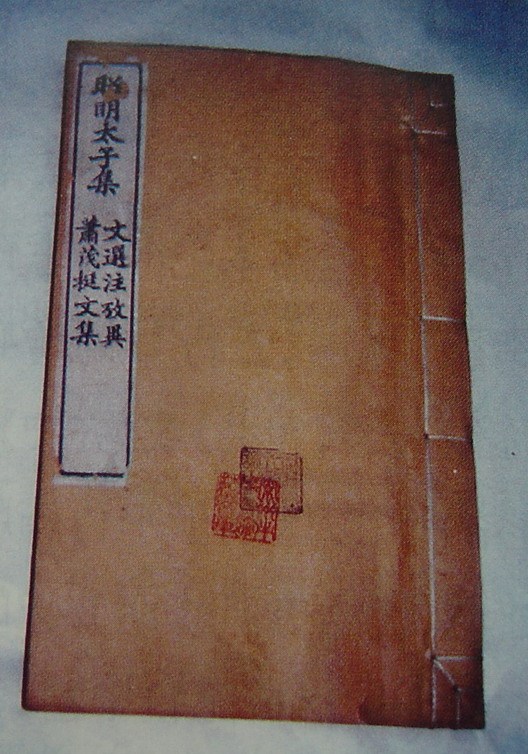 昭明太子集
文選注攷異
蕭茂挺文集